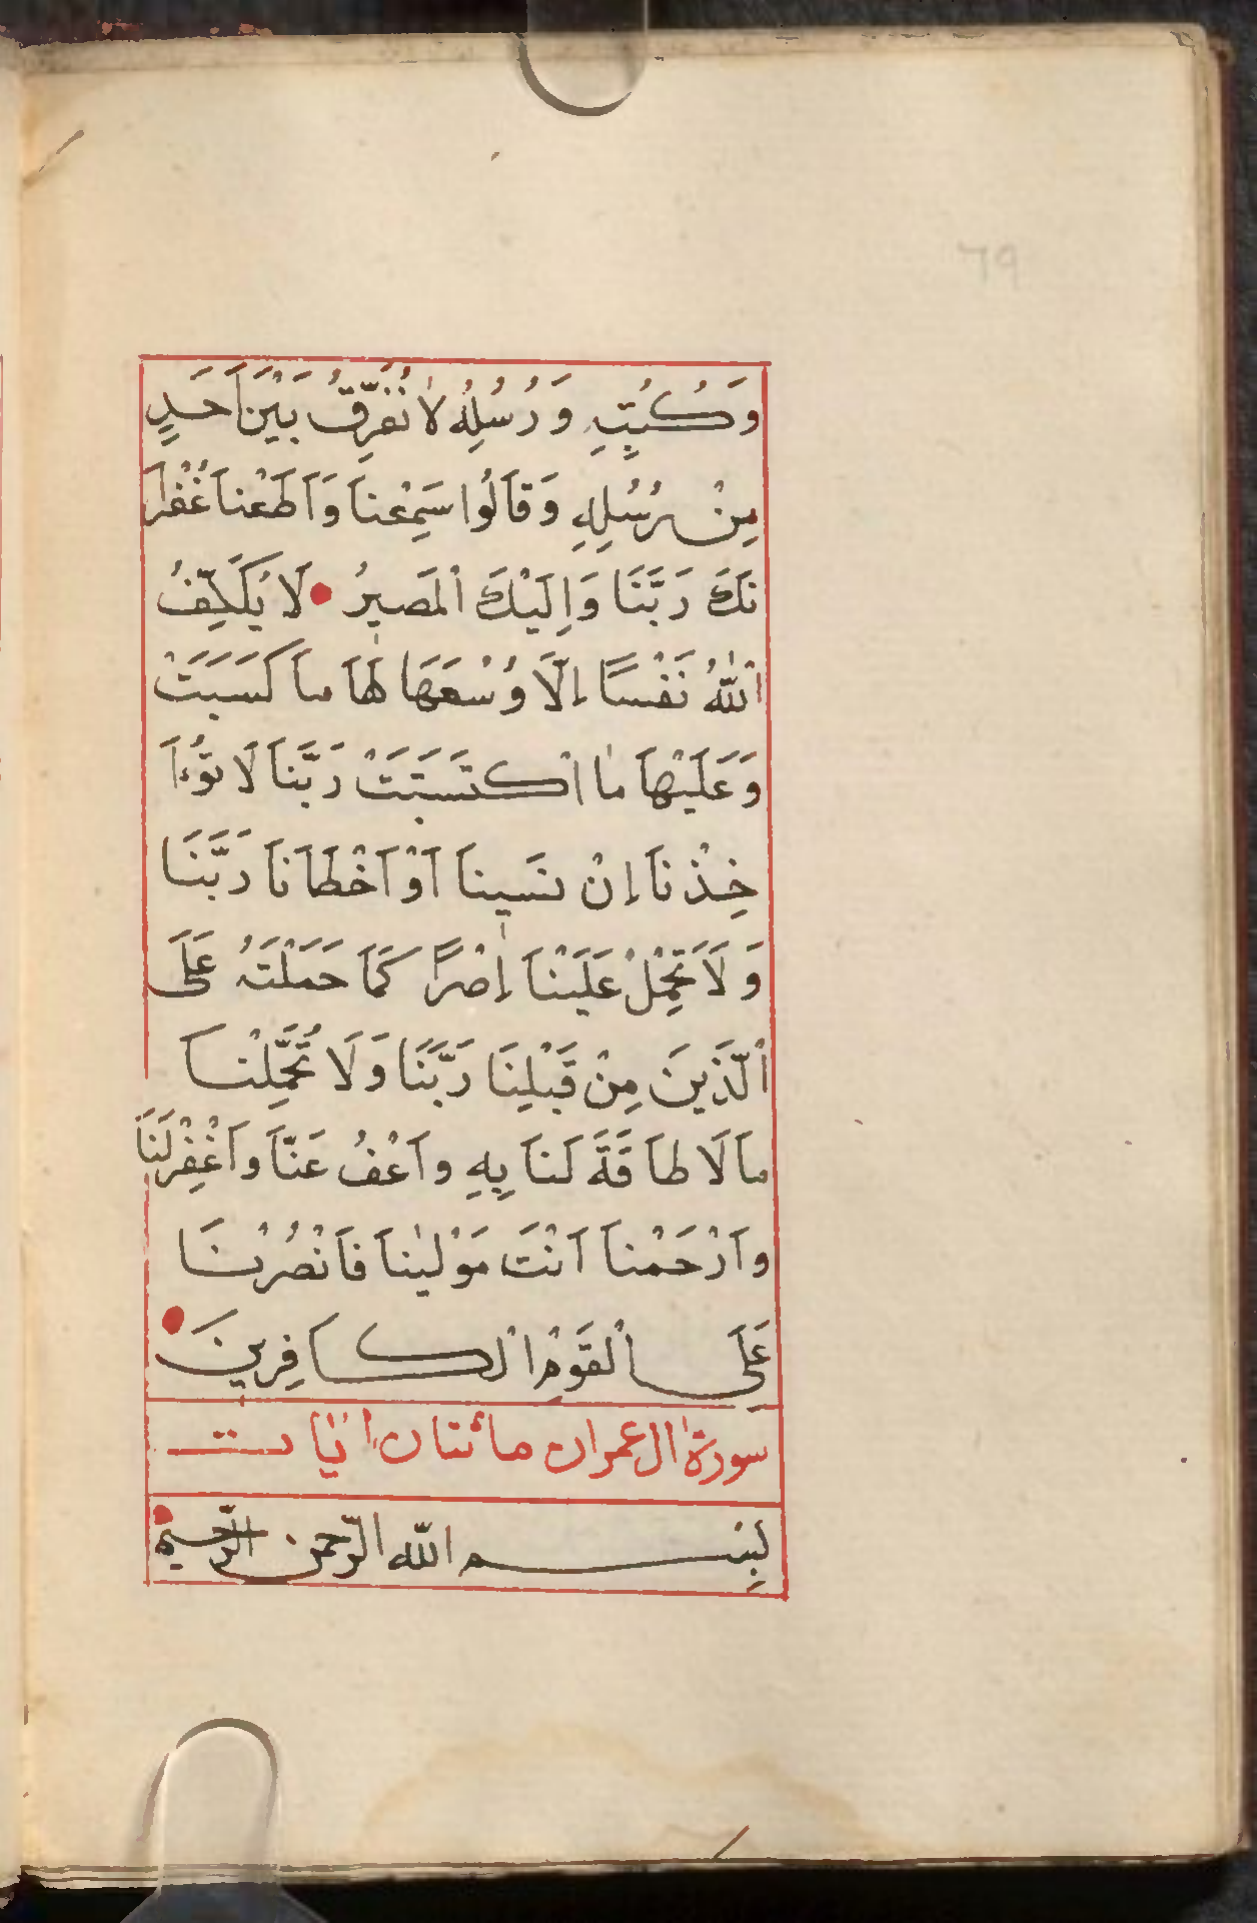 ٦٩
وَكُتُبِهِ وَرُسُلِهِ لَا نُفَرِّقُ بَيْنَ اَحَدٍ
مِنْ رُسُلِهِ وَقَالُوا سَمِعْنَا وَاَطَعْنَا غُفْرَا
نَكَ رَبَّنَا وَاِلَيْكَ الْمَصِيرُ لَا يُكَلِّفُ
اللّٰهُ نَفْسًا اِلَّا وُسْعَهَا لَهَا مَا كَسَبَتْ
وَعَلَيْهَا مَا اكْتَسَبَتْ رَبَّنَا لَا تُؤَا
خِذْنَا اِنْ نَسِينَا اَوْ اَخْطَانَا رَبَّنَا
وَلَا تَحْمِلْ عَلَيْنَا اِصْرًا كَمَا حَمَلْتَهُ عَلَى
الَّذِينَ مِنْ قَبْلِنَا رَبَّنَا وَلَا تُحَمِّلْنَا
مَا لَا طَاقَةَ لَنَا بِهِ وَاعْفُ عَنَّا وَاغْفِرْ لَنَا
وَارْحَمْنَا اَنْتَ مَوْلٰينَا فَانْصُرْنَا
عَلَى الْقَوْمِ الْكَافِرِينَ
سورة اٰل عمران مائتان اٰيات
بِسْم اللّه الرّحمن الرّحيم